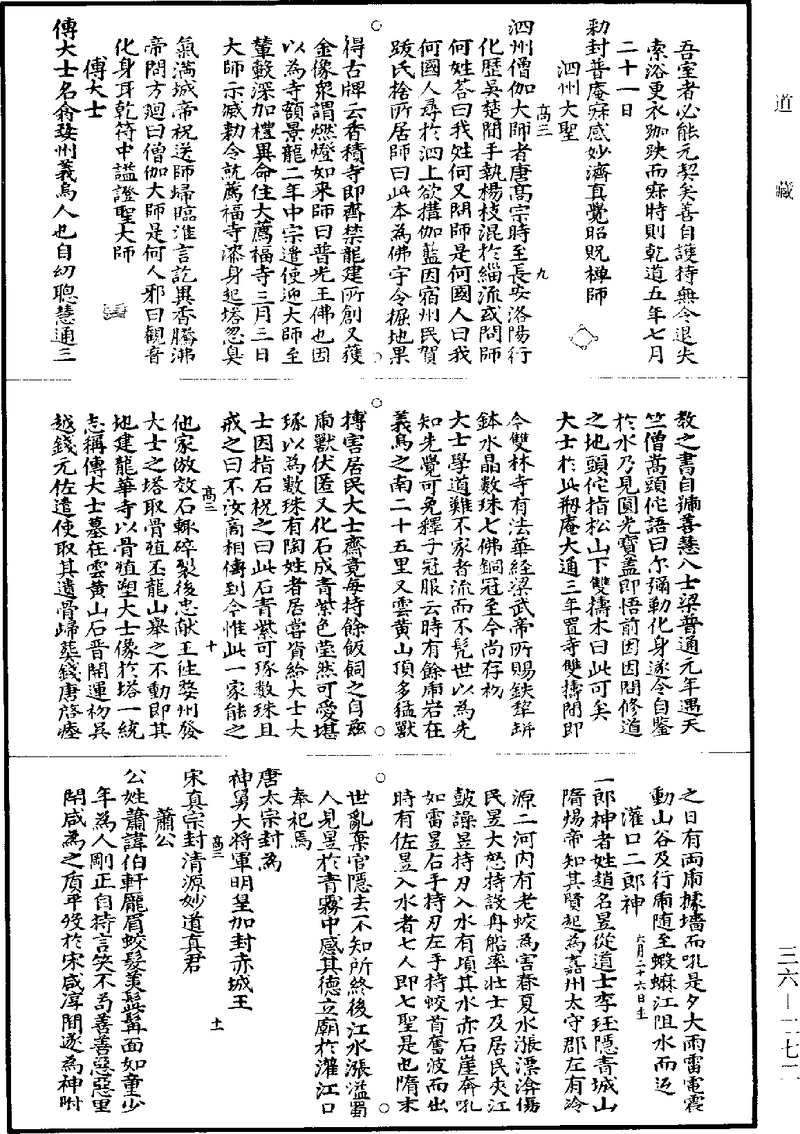 道藏
吾室者必能元契矣善自護持無令退失
索浴更衣跏趺而寂時則乾道五年七月
二十一日
勑封普庵寂感妙濟真覺昭貺禪師
泗州大聖
高三 九
泗州僧伽大師者唐高宗時至長安洛陽行
化歷吳楚間手執楊枝混於緇流或問師
何姓荅曰我姓何又問師是何國人曰我
何國人尋於泗上欲搆伽藍因宿州民賀
跋氏捨所居師曰此本為佛宇令掘地果
得古牌云香積寺即齊禁龍建所創又獲
金像衆謂燃燈如来師曰普光王佛也因
以為寺額景龍二年中宗遣使迎大師至
輦轂深加禮異命住大薦福寺三月三日
大師示滅勑令就薦福寺漆身起塔忽臭
氣滿城帝祝送師歸臨淮言訖異香騰沸
帝問万廻曰僧伽大師是何人邪曰觀音
化身耳乾符中謚證聖大師
傅大士
傅大士名翕婺州義烏人也自幼聰慧通三
教之書自號善慧八士梁普通元年遇天
竺僧嵩頭佗語曰尔彌勒化身遂令自鑒
於水乃見圓光寶蓋即悟前因因問修道
之地頭佗指松山下雙擣木曰此可矣
大士於此剏庵大通三年置寺雙擣間即
今雙林寺有法華経梁武帝所賜鉄犁缾
鉢水晶數珠七佛銅冠至今尚存初
大士學道難不家者流而不髡世以為先
知先覺可免釋子冠服云時有餘甫岩在
義烏之南二十五里又雲黄山頂多猛獸
摶害居民大士齋竟每持餘飯飼之自兹
甫獸伏匿又化石成青紫色莹然可愛堪
琢以為數珠有陶姓者居甞資給大士大
士因指石柷之曰此石青紫可琢数珠且
戒之曰不汝髙相傳到今惟此一家能之
高三 十
他家倣效石輒碎裂後忠献王徃婺州發
大士之塔取骨殖至龍山舉之不動即其
地建龍華寺以骨殖塑大士像於塔一統
志稱傅大士墓在雲黄山石晋開運初吳
越錢元佐遣使取其遺骨歸葬錢唐啓瘗
之日有両甫據墻而吼是夕大雨雷電震
動山谷及行甫随至蝦蟆江阻水而返
灌口二郎神 六月二十六日生
二郎神者姓趙名昱從道士李珏隱青城山
隋煬帝知其賢起為嘉州太守郡左有冷
源二河内有老蛟為害春夏水漲漂渰傷
民昱大怒持設舟船率壮士及居民夾江
鼓譟昱持刃入水有頃其水赤石崖奔吼
如雷昱右手持刃左手持蛟首奮波而出
時有佐昱入水者七人即七聖是也隋末
世亂棄官隱去不知所終後江水漲溢蜀
人見昱於青霧中感其德立廟於灌江口
奉祀焉
唐太宗封為
神勇大將軍明皇加封赤城王
高三 十一
宋真宗封清源妙道真君
蕭公
公姓蕭諱伯軒龎眉蛟髮美髭髯面如童少
年為人剛正自持言笑不苟善善惡惡里
閈咸為之質平歿於宋咸淳間遂為神附
三六—二七二